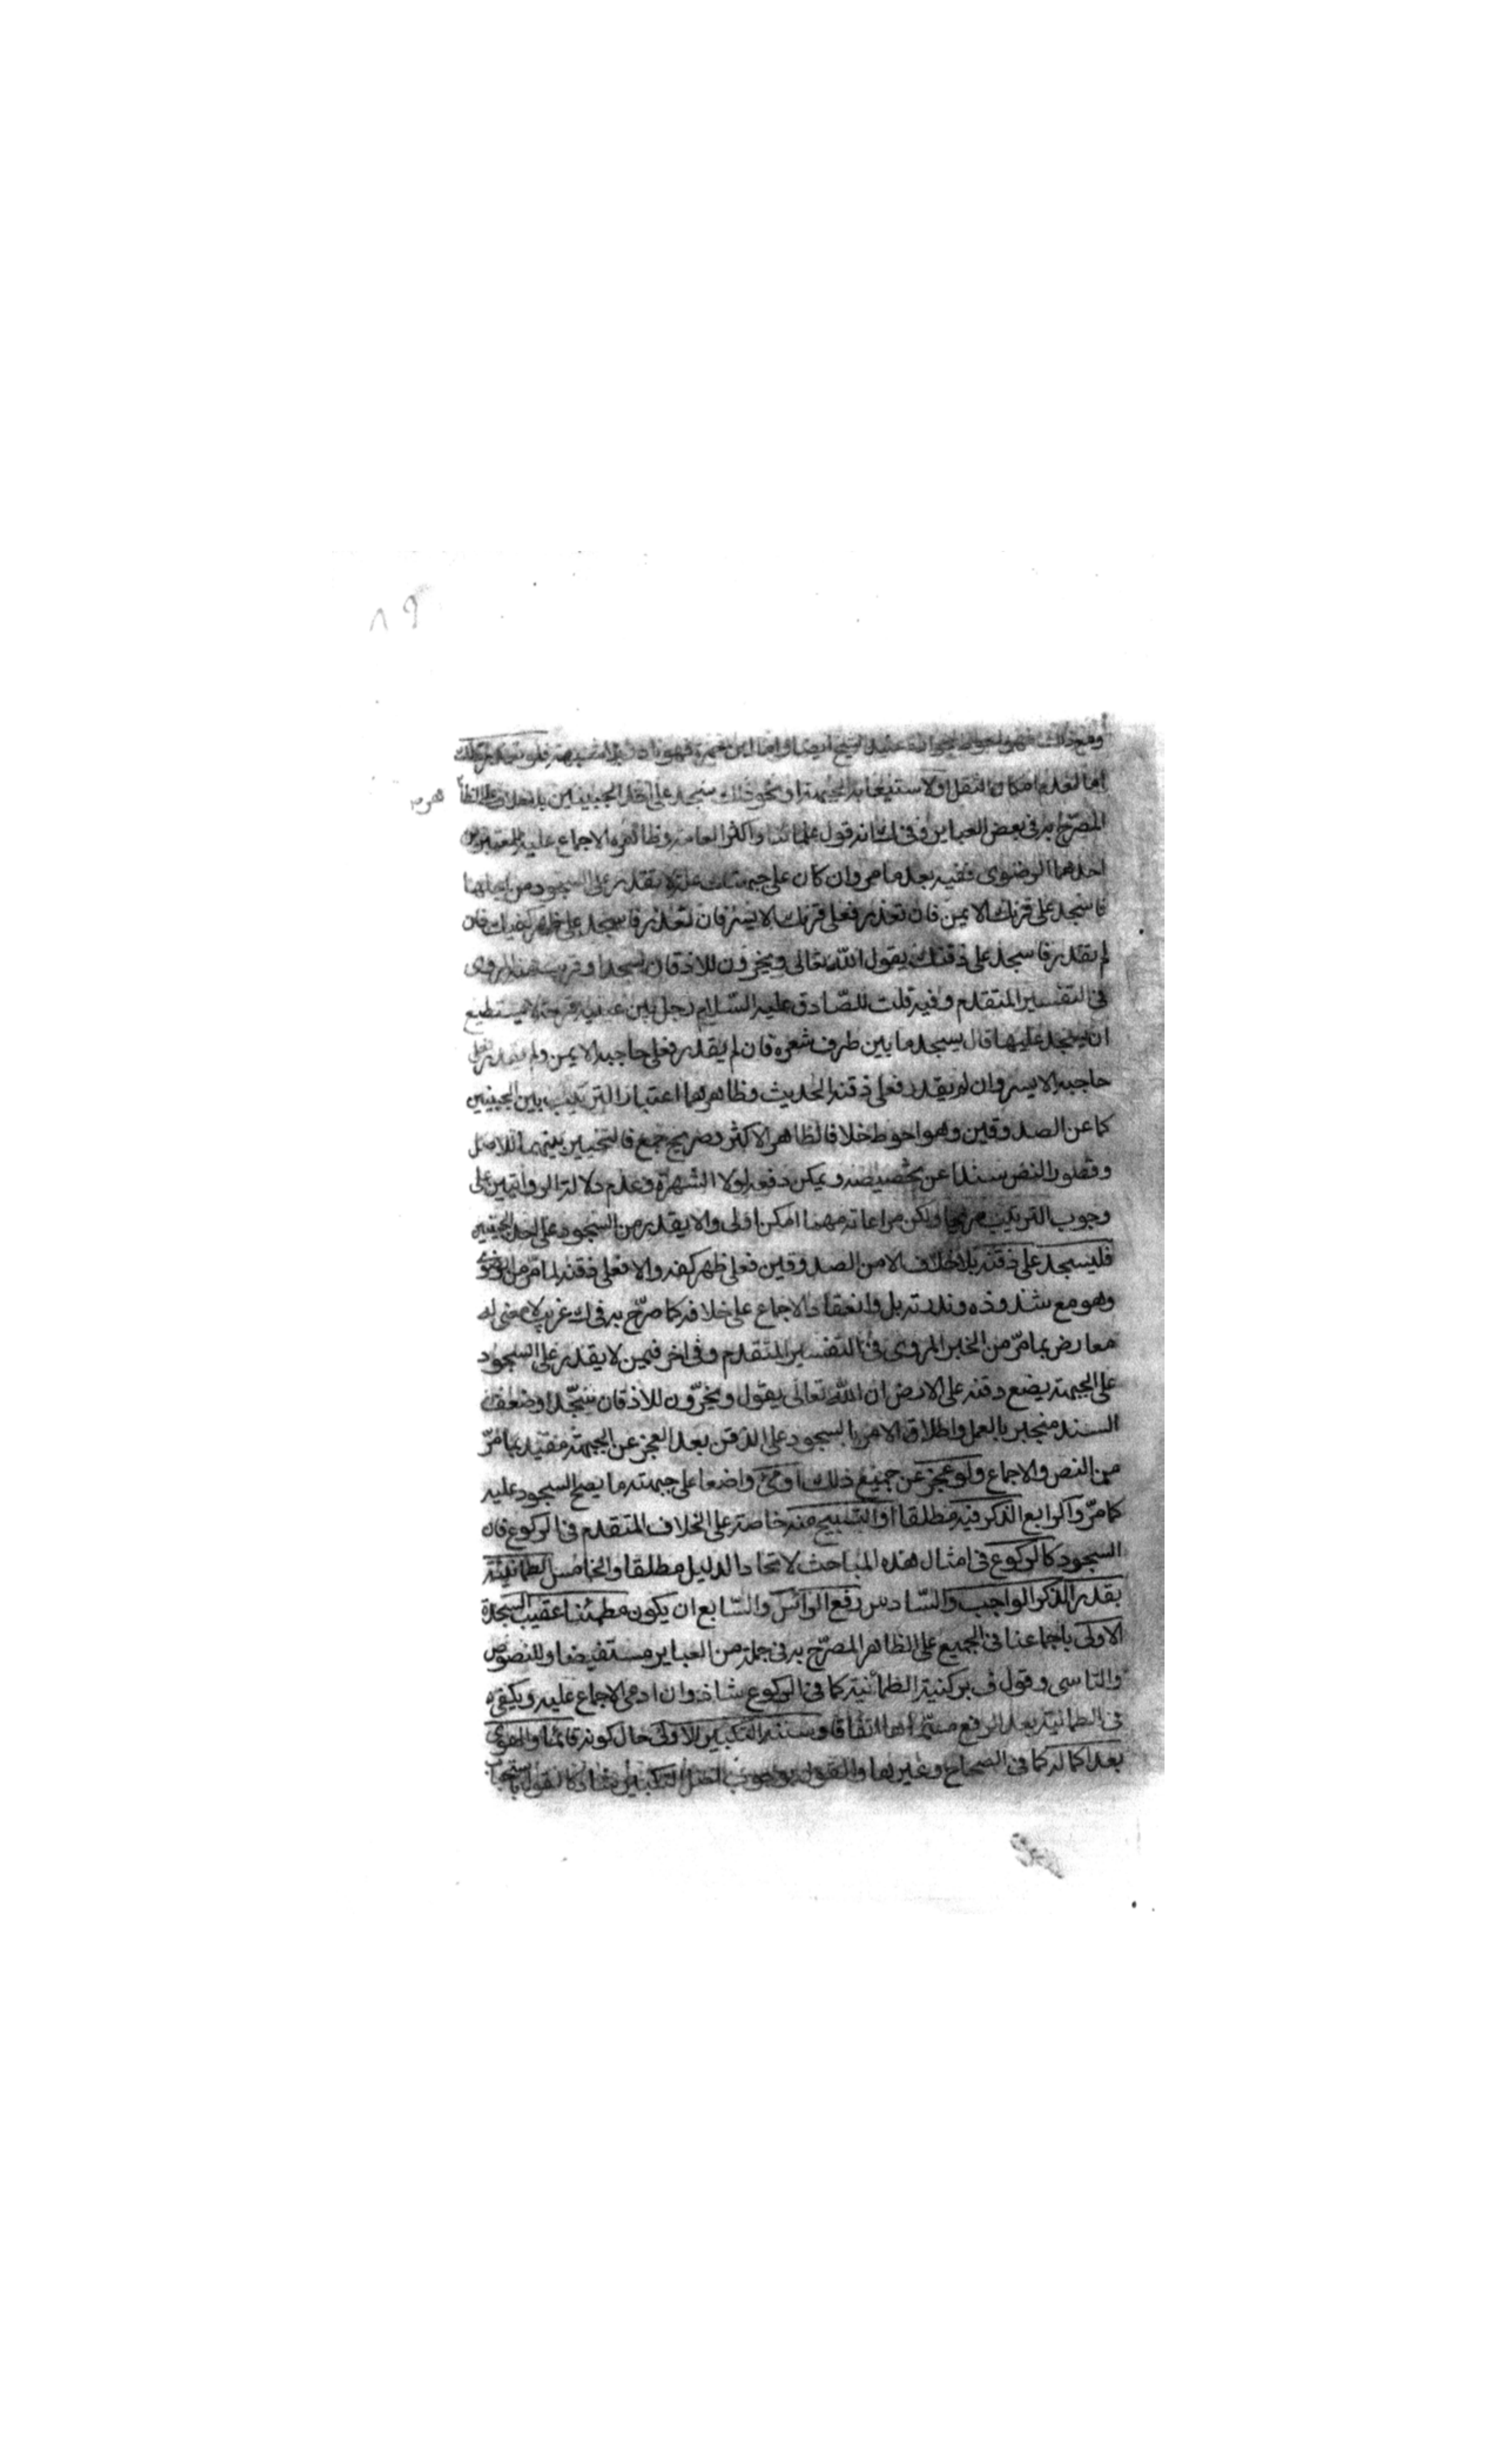 ومع ذلك فهو احوط
اما لعدم امكان النقل او لاستيعابه الجبهة او نحو ذلك سجد على احد الجبينين بلا خلاف
المصرح به في بعض العباير وفي ك انه قول علمائنا واكثر العامة وظاهره الاجماع عليه للمعتبرين
احدهما الرضوي ففيه بعد ما مر وان كان على جبهتك علة لا تقدر على السجود من اجلها
فاسجد على قرنك الايمن فان تعذر فعلى قرنك الايسر فان تعذر فاسجد على ظهر كفيك فان
لم تقدر فاسجد على ذقنك يقول الله تعالى ويخرون للاذقان سجدا وقريب منه المروي
في التفسير المتقدم وفيه قلت للصادق عليه السلام رجل بين عينيه قرحة لا يستطيع
ان يسجد عليها قال يسجد ما بين طرف شعره فان لم يقدر فعلى حاجبه الايمن ولم يقدر فعلى
حاجبه الايسر وان لم يقدر فعلى ذقنه الحديث وظاهرهما اعتبار الترتيب بين الجبينين
كما عن الصدوقين وهو احوط خلافا لظاهر الاكثر وصريح جمع فالتخيير بينهما للاصل
وقصور النص سندا عن تخصيصه ويمكن دفعه لولا الشهرة وعدم دلالة الروايتين على
وجوب الترتيب صريحا ولكن مراعاته مهما امكن اولى والا يقدر من السجود على احد الجبينين
فليسجد على ذقنه بلا خلاف الا من الصدوقين فعلى ظهر كفه والا فعلى ذقنه لما مر من الرضوي
وهو مع شذوذه وندرته بل وانعقاد الاجماع على خلافه كما صرح به في ك غريب لا معنى له
معارض بما مر من الخبر المروي في التفسير المتقدم وفي اخر فيمن لا يقدر على السجود
على الجبهة يضع ذقنه على الارض ان الله تعالى يقول ويخرون للاذقان سجدا وضعف
السند منجبر بالعمل واطلاق الامر بالسجود على الذقن بعد العجز عن الجبهة مقيد بما مر
من النص والاجماع ولو عجز عن جميع ذلك اومئ واضعا على جبهته ما يصح السجود عليه
كما مر والرابع الذكر فيه مطلقا او التسبيح منه خاصة على الخلاف المتقدم في الركوع فان
السجود كالركوع في امثال هذه المباحث لاتحاد الدليل مطلقا والخامس الطمانينة
بقدر الذكر الواجب والسادس رفع الرأس والسابع ان يكون مطمئنا عقيب السجدة
الاولى باجماعنا في الجميع على الظاهر المصرح به في جملة من العباير مستفيضا وللنصوص
والتاسي وقول ف بركنية الطمأنينة كما في الركوع شاذ وان ادعى الاجماع عليه ويكفي
في الطمانينة بعد الرفع مسماها اتفاقا وسننه التكبير للاولى حال كونه قائما والهوي
بعد اكماله كما في الصحاح وغيرها والقول بوجوب اصل التكبير شاذ كالقول باستحباب